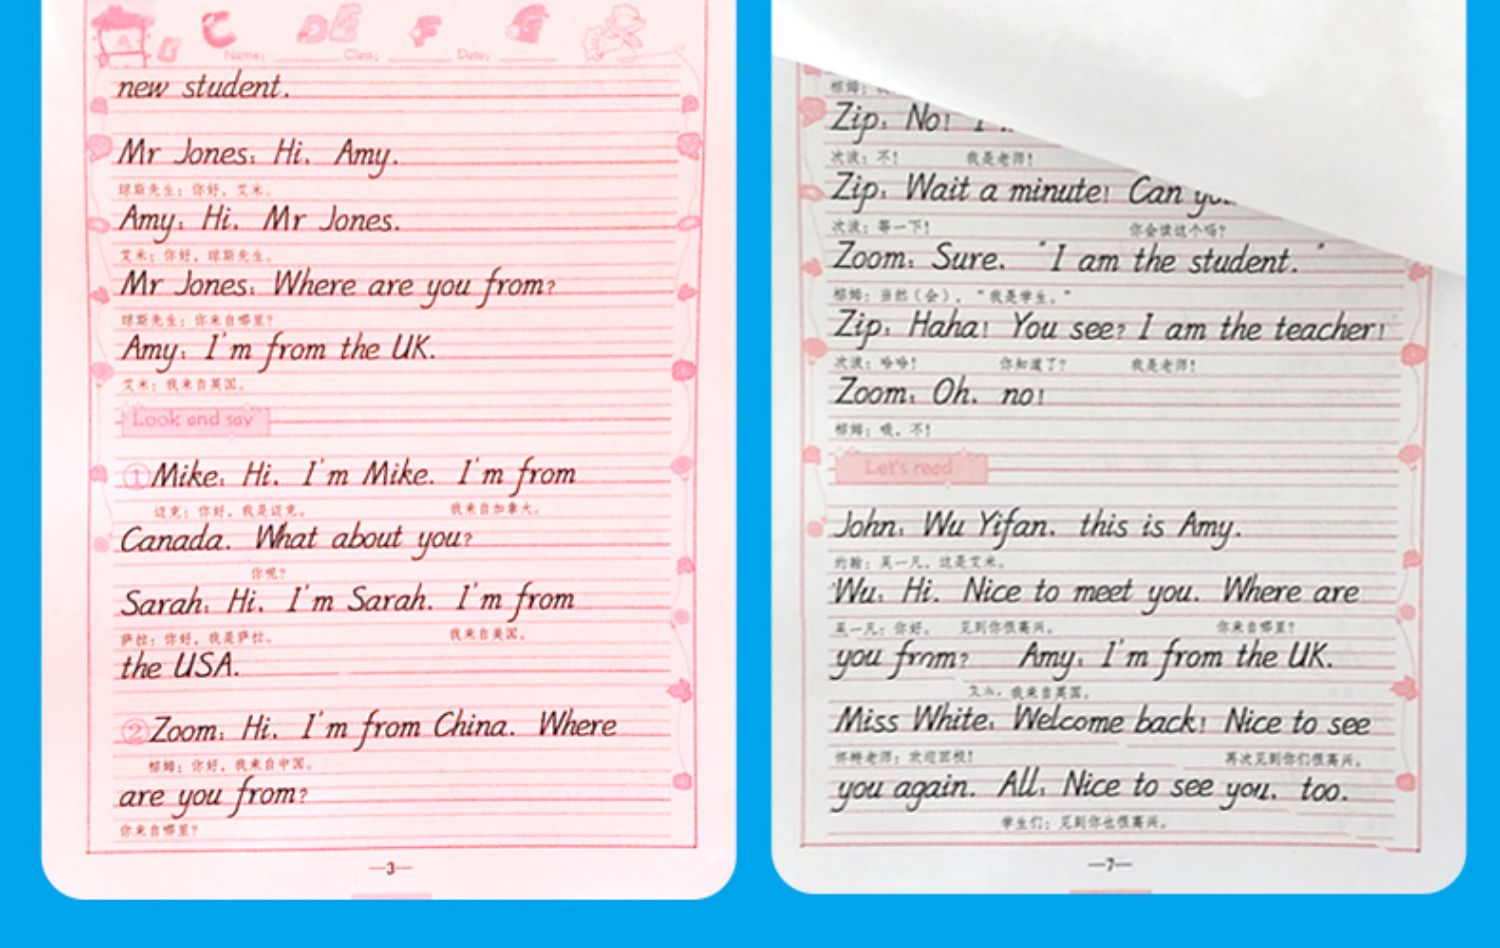 A B C D E F G
Name: Class: Date:
new student.
Mr Jones: Hi, Amy.
琼斯先生：你好，艾米。
Amy: Hi, Mr Jones.
艾米：你好，琼斯先生。
Mr Jones: Where are you from?
琼斯先生：你来自哪里？
Amy: I'm from the UK.
艾米：我来自英国。
Look and say
①Mike: Hi, I'm Mike. I'm from
迈克：你好，我是迈克。 我来自加拿大。
Canada. What about you?
你呢？
Sarah: Hi, I'm Sarah. I'm from
萨拉：你好，我是萨拉。 我来自美国。
the USA.
②Zoom: Hi, I'm from China. Where
祖姆：你好，我来自中国。
are you from?
你来自哪里？
—3—
祖姆：
Zip: No! I
次波：不！ 我是老师！
Zip: Wait a minute! Can
次波：等一下！ 你会读这个吗？
Zoom: Sure. "I am the student."
祖姆：当然（会），“我是学生。”
Zip: Haha! You see? I am the teacher!
次波：哈哈！ 你知道了？ 我是老师！
Zoom: Oh, no!
祖姆：哦，不！
Let's read
John: Wu Yifan, this is Amy.
约翰：吴一凡，这是艾米。
Wu: Hi. Nice to meet you. Where are
吴一凡：你好。 见到你很高兴。 你来自哪里？
you from? Amy: I'm from the UK.
艾米：我来自英国。
Miss White: Welcome back! Nice to see
怀特老师：欢迎回校！ 再次见到你们很高兴。
you again. All: Nice to see you, too.
学生们：见到你也很高兴。
—7—